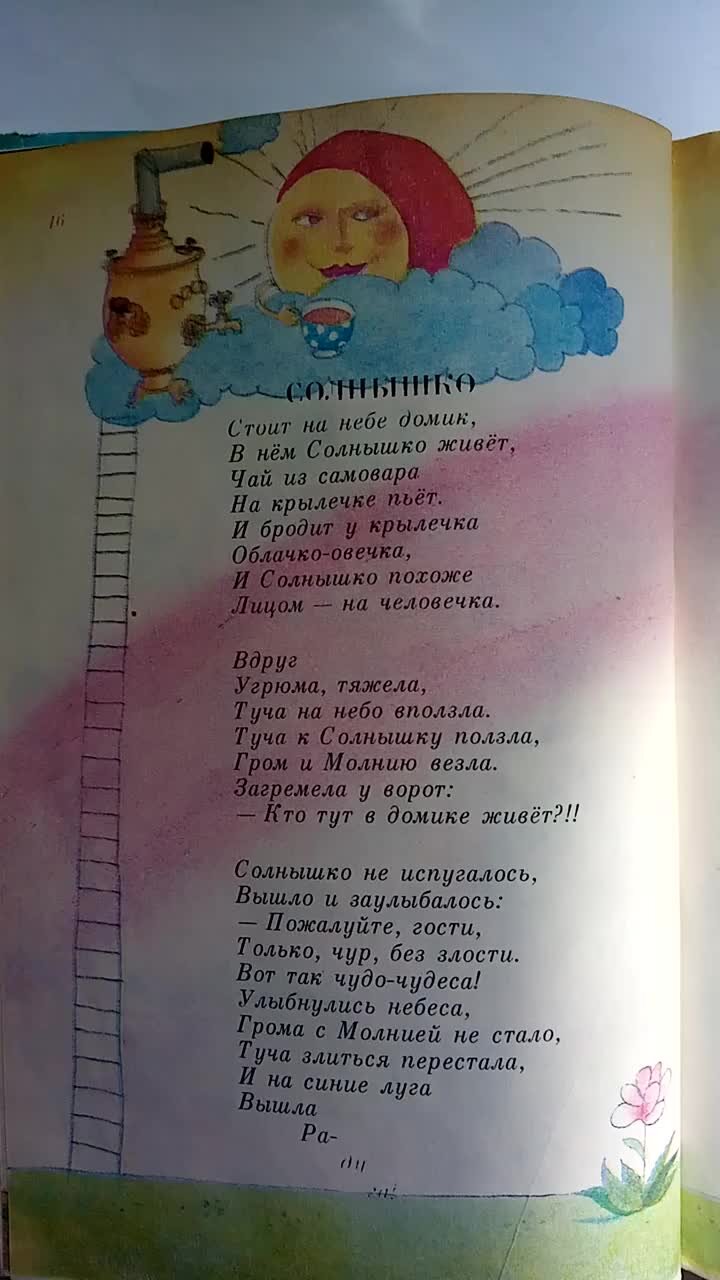 16
СОЛНЫШКО
Стоит на небе домик,
В нём Солнышко живёт,
Чай из самовара
На крылечке пьёт.
И бродит у крылечка
Облачко-овечка,
И Солнышко похоже
Лицом — на человечка.
Вдруг
Угрюма, тяжела,
Туча на небо вползла.
Туча к Солнышку ползла,
Гром и Молнию везла.
Загремела у ворот:
— Кто тут в домике живёт?!!
Солнышко не испугалось,
Вышло и заулыбалось:
— Пожалуйте, гости,
Только, чур, без злости.
Вот так чудо-чудеса!
Улыбнулись небеса,
Грома с Молнией не стало,
Туча злиться перестала,
И на синие луга
Вышла
Ра-
ду